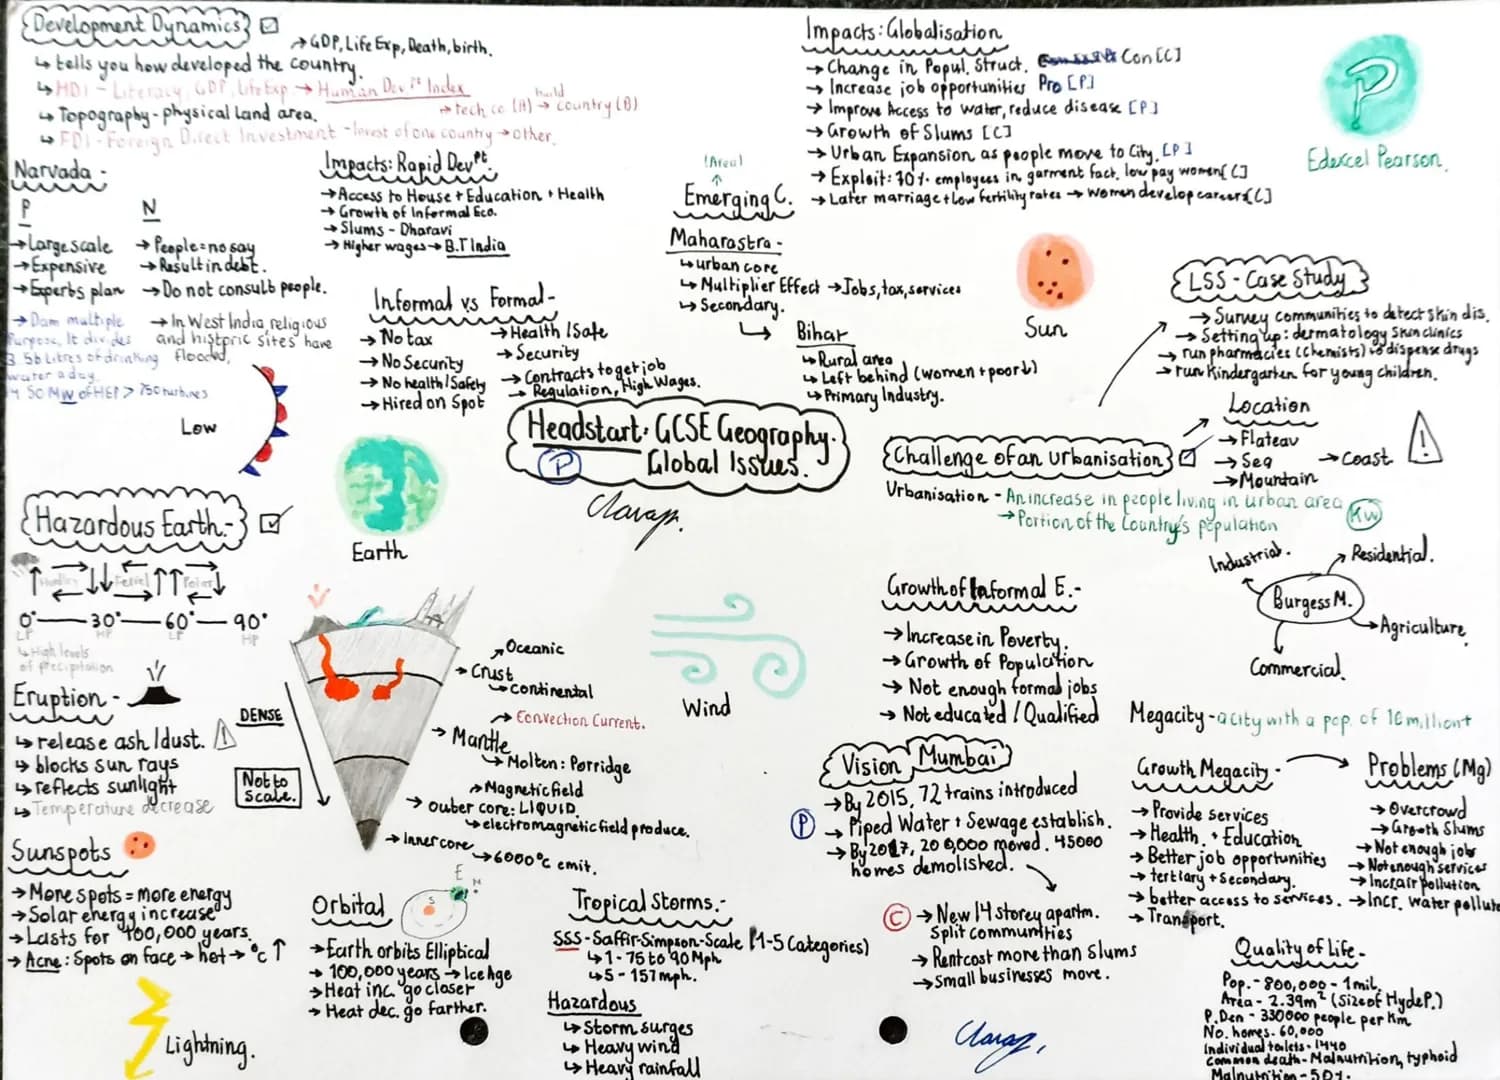 Development Dynamics
→ GDP, Life Exp, Death, birth.
↳ tells you how developed the country.
↳ HDI - Literacy, GDP, Life Exp → Human Dev.pt Index
↳ Topography - physical land area.
→ tech co. (A) → build country (B)
↳ FDI - Foreign Direct Investment - Invest of one country → other.
Narvada -
P
→ Large scale
→ Expensive
→ Experts plan
→ Dam multiple
Purpose, It divides
3.5b Litres of drinking
water a day.
50 MW of HEP > 750 turbines
N
→ People = no say
→ Result in debt.
→ Do not consult people.
→ In West India, religious
and historic sites have
flooded.
Low
Impacts: Rapid Dev.pt
→ Access to House + Education + Health
→ Growth of Informal Eco.
→ Slums - Dharavi
→ Higher wages → B.T India
Informal vs Formal -
→ No tax
→ No Security
→ No health/Safety
→ Hired on Spot
→ Health / Safe
→ Security
→ Contracts to get job
→ Regulation, High Wages.
(Area)
↑
Emerging C.
Maharastra -
↳ urban core
↳ Multiplier Effect → Jobs, tax, services
↳ Secondary.
Bihar
↳ Rural area
↳ Left behind (women + poor↓)
↳ Primary Industry.
Impacts: Globalisation
→ Change in Popul. Struct. Con [C]
→ Increase job opportunities Pro [P]
→ Improve Access to water, reduce disease [P]
→ Growth of Slums [C]
→ Urban Expansion as people move to City. [P]
→ Exploit: 70% employees in garment fact. low pay women [C]
→ Later marriage + Low fertility rates → Women develop careers [C]
P
Edexcel Pearson.
Sun
LSS - Case Study
→ Survey communities to detect skin dis.
→ Setting up: dermatology skin clinics
→ run pharmacies (chemists) to dispense drugs
→ run Kindergarten for young children.
Headstart: GCSE Geography.
P Global Issues.
Challenge of an Urbanisation
Location
→ Flateau
→ Sea → Coast
→ Mountain
!
Urbanisation - An increase in people living in urban area
→ Portion of the Country's population
KW
Industrial.
Residential.
Burgess M.
→ Agriculture.
Commercial.
Earth
Hazardous Earth. -
Hadley Ferrel Polar
0° — 30° — 60° — 90°
LP HP LP HP
↳ High levels
of precipitation
Eruption -
↳ release ash/dust. !
↳ blocks sun rays
↳ reflects sunlight
↳ Temperature decrease
DENSE
Not to
Scale.
→ Oceanic
→ Crust
→ Continental
→ Convection Current.
→ Mantle
↳ Molten: Porridge
→ Magnetic field
→ Outer core: LIQUID.
↳ electromagnetic field produce.
→ Inner core
→ 6000°c emit.
Wind
Growth of Informal E. -
→ Increase in Poverty.
→ Growth of Population
→ Not enough formal jobs
→ Not educated / Qualified
Vision Mumbai
P
→ By 2015, 72 trains introduced
→ Piped Water + Sewage establish.
→ By 2017, 200,000 moved. 45000
homes demolished.
C
→ New 14 storey apartm.
Split communities
→ Rent cost more than Slums
→ Small businesses move.
Megacity - a city with a pop. of 10 million+
Growth Megacity -
→ Provide services
→ Health. + Education
→ Better job opportunities
→ tertiary + Secondary.
→ better access to services.
→ Transport.
Problems (Mg)
→ Overcrowd
→ Growth Slums
→ Not enough jobs
→ Not enough services
→ Incr air pollution
→ Incr. water pollute
Sunspots
→ More spots = more energy
→ Solar energy increase
→ Lasts for 100,000 years.
→ Acne: Spots on face → hot → °c ↑
Lightning.
Orbital
S
E
M
→ Earth orbits Elliptical
→ 100,000 years → Ice Age
→ Heat inc. go closer
→ Heat dec. go farther.
Tropical Storms. -
SSS - Saffir-Simpson-Scale (1-5 Categories)
↳ 1 - 75 to 90 Mph
↳ 5 - 157 mph.
Hazardous
↳ Storm surges
↳ Heavy wind
↳ Heavy rainfall
Quality of Life -
Pop. - 800,000 - 1 mil.
Area - 2.39m² (Size of Hyde P.)
P. Den - 330000 people per Km
No. homes - 60,000
Individual toilets - 1440
Common death - Malnutrition, typhoid
Malnutrition - 50%.